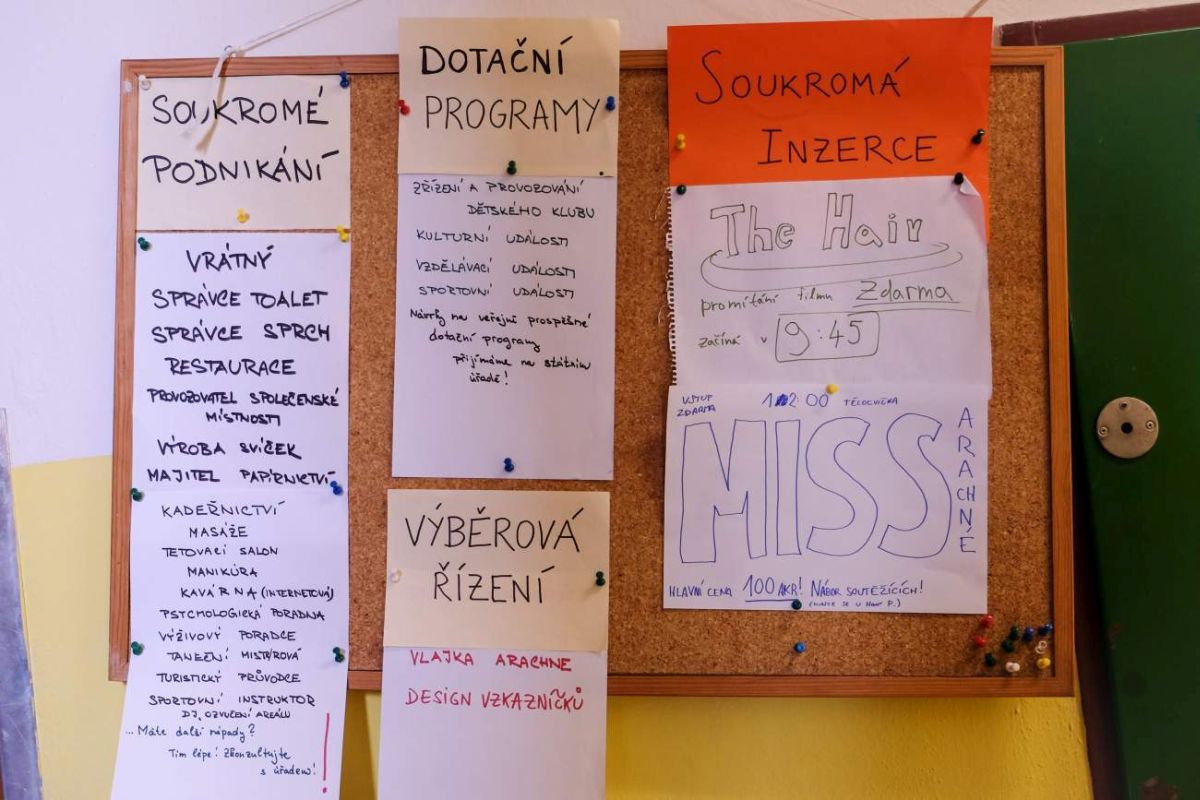 SOUKROMÉ
PODNIKÁNÍ
VRÁTNÝ
SPRÁVCE TOALET
SPRÁVCE SPRCH
RESTAURACE
PROVOZOVATEL SPOLEČENSKÉ
MÍSTNOSTI
VÝROBA SVÍČEK
MAJITEL PAPÍRNICTVÍ
KADEŘNICTVÍ
MASÁŽE
TETOVACÍ SALON
MANIKÚRA
KAVÁRNA (INTERNETOVÁ)
PSYCHOLOGICKÁ PORADNA
VÝŽIVOVÝ PORADCE
TANEČNÍ MISTROVÁ
TURISTICKÝ PRŮVODCE
SPORTOVNÍ INSTRUKTOR
DJ, OZVUČENÍ AREÁLU
...Máte další nápady?
Tím lépe! Zkonzultujte
s úřadem!
DOTAČNÍ
PROGRAMY
ZŘÍZENÍ A PROVOZOVÁNÍ
DĚTSKÉHO KLUBU
KULTURNÍ UDÁLOSTI
VZDĚLÁVACÍ UDÁLOSTI
SPORTOVNÍ UDÁLOSTI
Návrhy na veřejně prospěšné
dotační programy
přijímáme na státním
úřadě!
VÝBĚROVÁ
ŘÍZENÍ
VLAJKA ARACHNE
DESIGN VZKAZNÍČKŮ
SOUKROMÁ
INZERCE
The Hair
promítání filmu Zdarma
začíná v 9:45
VSTUP
ZDARMA
12:00 TĚLOCVIČNA
MISS
ARACHNÉ
HLAVNÍ CENA 100 AKR! NÁBOR SOUTĚŽÍCÍCH!